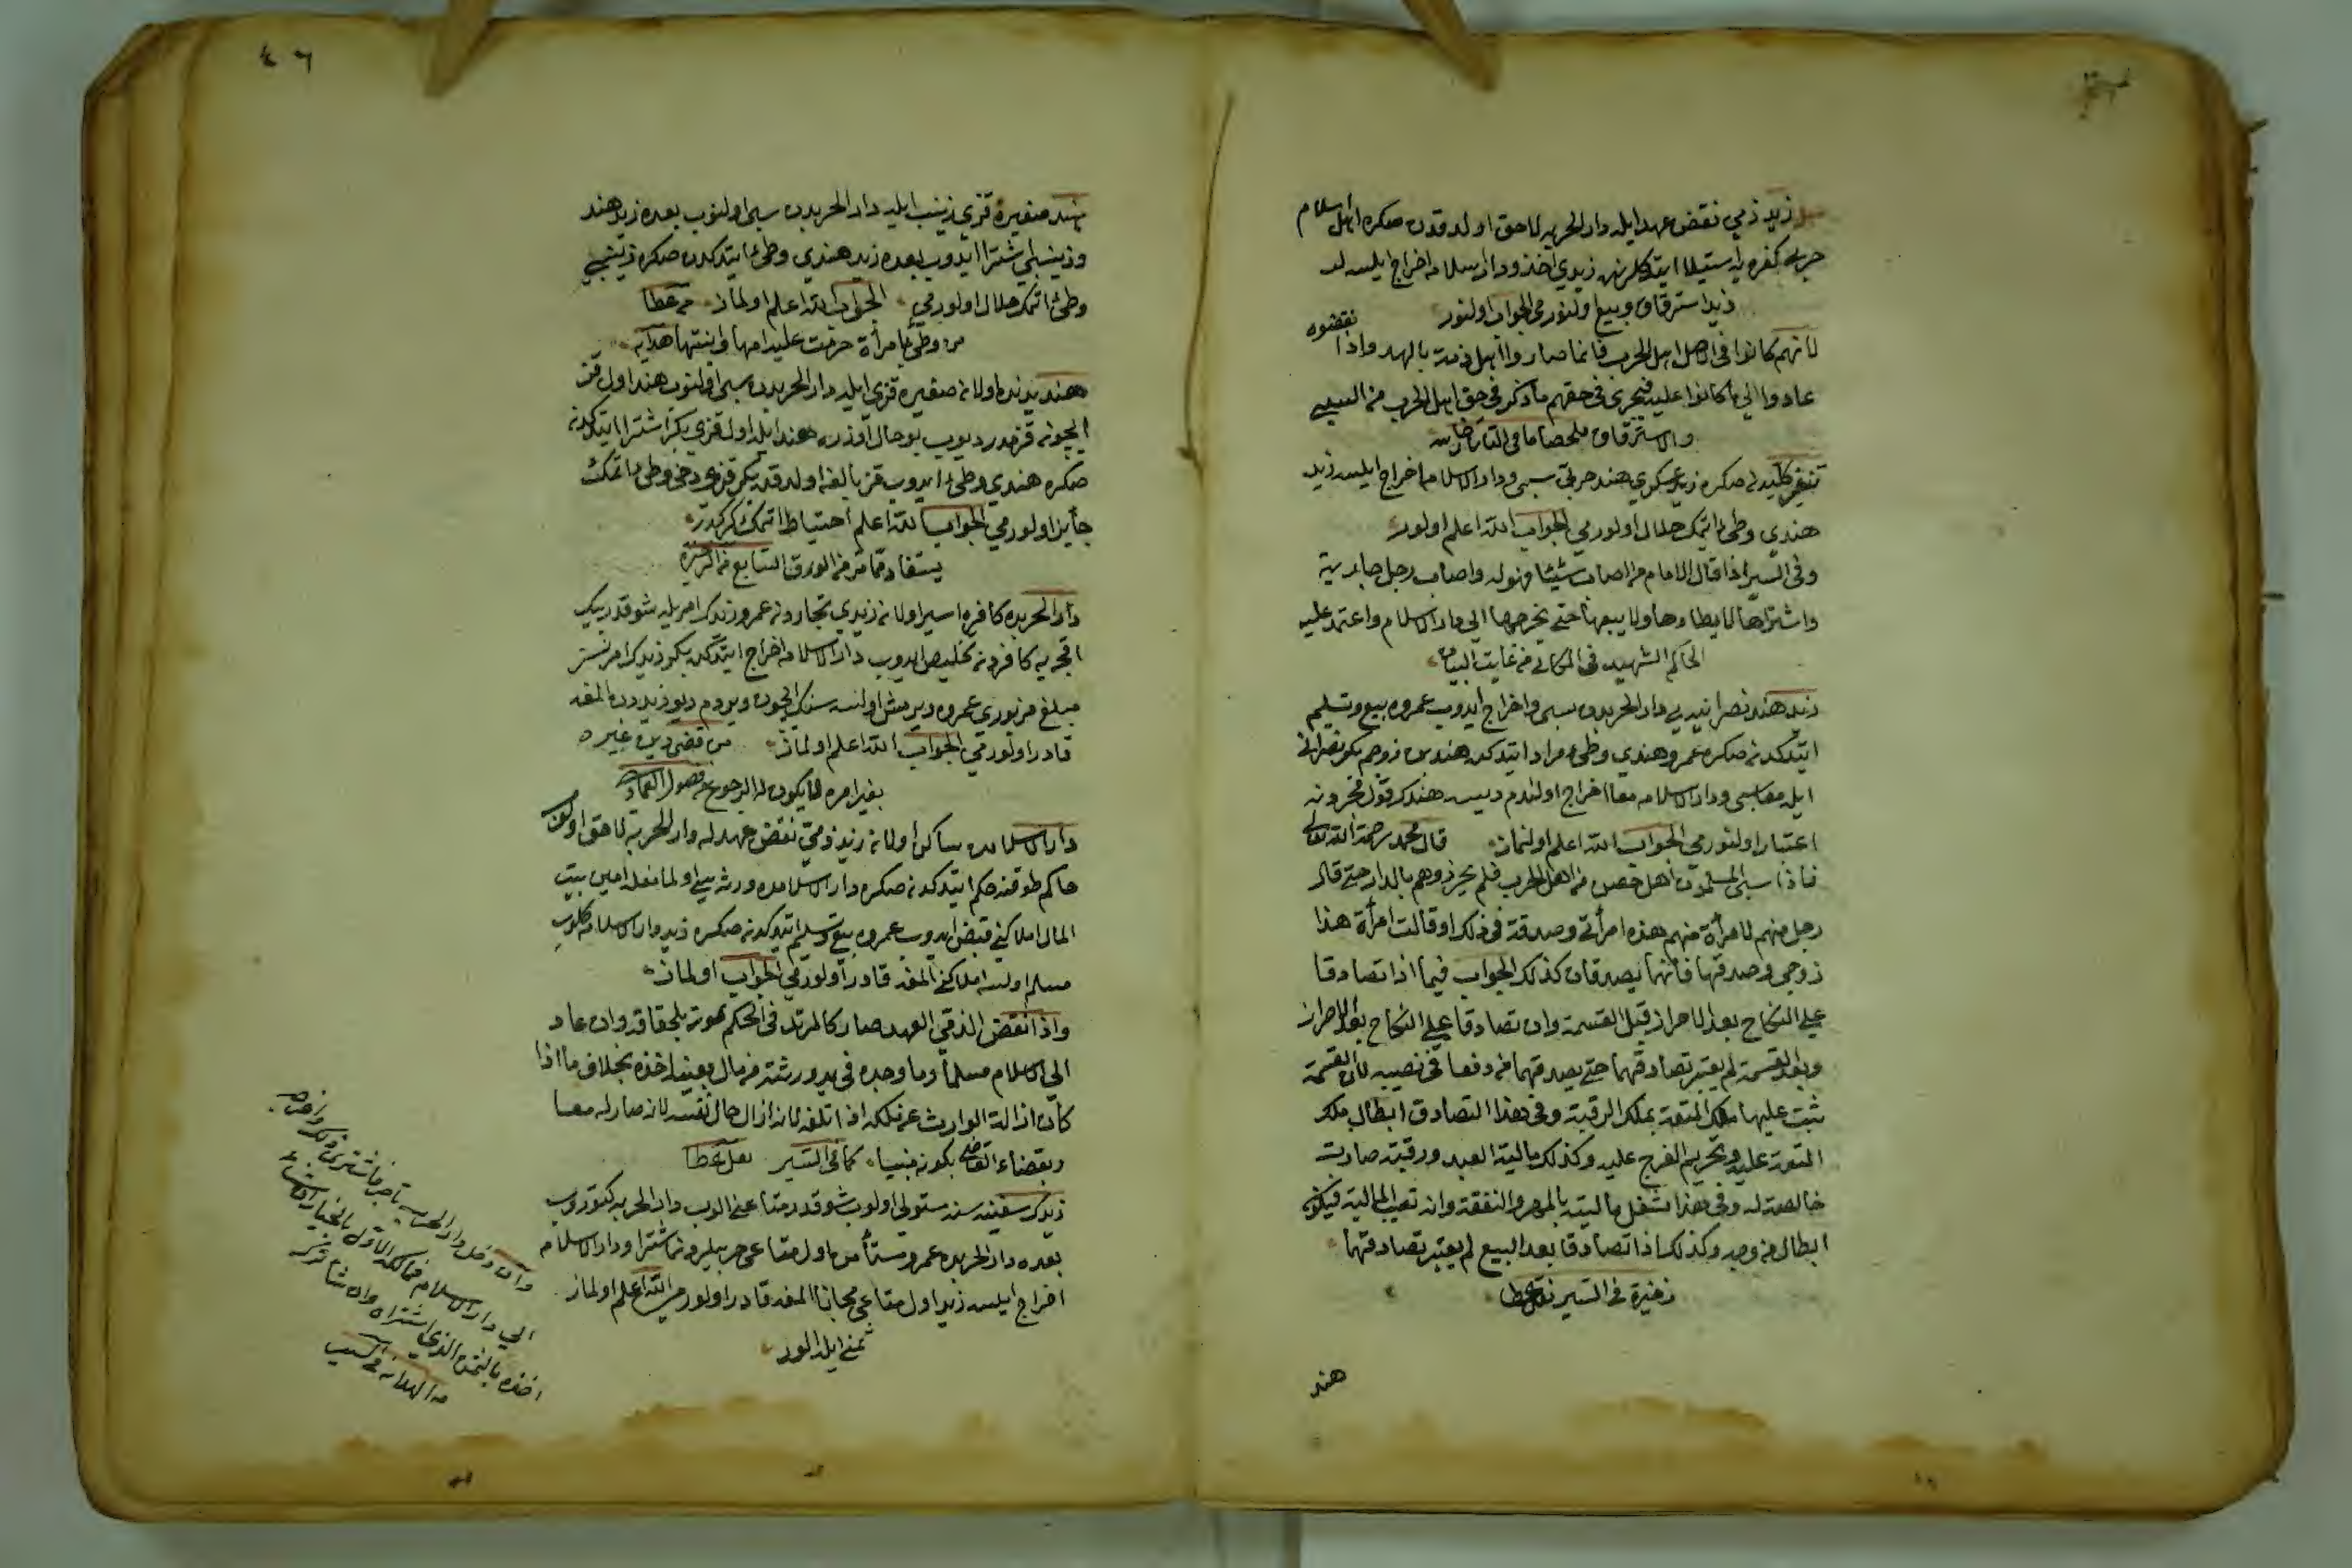 زيد ذمي نقض عهد ايله دار الحربه لاحق اولدقدن صكره اهل اسلام
حربله كفره يه استيلا ايتدكلرنده زيدي اخذ ودار اسلامه اخراج ايلسه لر
زيد استرقاق وبيع اولنورمي الجواب اولنور
لانهم كانوا في الاصل اهل الحرب فانما صاروا اهل ذمة بالعهد واذا نقضوه
عادوا الي ما كانوا عليه فيجري في حقهم ما ذكر في حق اهل الحرب من السبي
والاسترقاق ملخصا ما في التاتارخانيه
صكره زيد عسكري هند حربيّه سبي ودار الاسلامه اخراج ايلسه زيد
هندي وطئ ايتمك حلال اولورمي الجواب الله اعلم اولور
وفي السير اذا قال الامام من اصاب شيئا فهو له واصاب رجل جارية
واشتراها لا يطاءها ولا يبيعها حتى يخرجها الي دار الاسلام واعتمد عليه
الحاكم الشهيد في الكافي من غايت البيان
زيد هند نصرانيه يي دار الحربده سبي واخراج ايدوب عمروه بيع وتسليم
ايتدكدنصكره عمرو هندي وطئ مراد ايتدكده هند بن زوجم بكر نصراني
ايله معا سبي ودار الاسلامه معا اخراج اولندم ديسه هندك قول مجردينه
اعتبار اولنورمي الجواب الله اعلم اولنماز قال محمد رحمة الله تعالى
فاذا سبي المسلمون اهل حصن من اهل الحرب فلم يحرزوهم بالدار حتى قال
رجل منهم لامرأة منهم هذه امرأتي وصدقته في ذلك او قالت امرأة هذا
زوجي وصدقها فانهما يصدقان كذلك الجواب فيما اذا تصادقا
علي النكاح بعد الاحراز قبل القسمة وان تصادقا علي النكاح بعد الاحراز
وبعد القسمة لم يعتبر تصادقهما حتى يصدقهما من وقعا في نصيبه لان القسمة
تثبت عليها ملك المتعة بملك الرقبة وفي هذا التصادق ابطال ملك
المتعة عليه وتحريم الفرج عليه وكذلك مالية العبد ورقبته صارت
خالصة له وفي هذا شغل ماليته بالمهر والنفقة وانه تعيب المالية فيكون
ابطال من وجه وكذلك اذا تصادقا بعد البيع لم يعتبر تصادقهما
ذخيرة في السير نقل عطا
هند
هند صغيره قزي زينب ايله دار الحربدن سبي اولنوب بعده زيد هند
وزينبي اشترا ايدوب بعده زيد هندي وطئ ايتدكدن صكره زينبي
وطئ ايتمك حلال اولورمي الجواب الله اعلم اولماز عطا
من وطئ امرأة حرمت عليه امها وابنتها هدايه
هند يدنده اولان صغيره قزي ايله دار الحربدن سبي اولنوب هند اول قز
ايچون قزمدر ديوب بو حال اوزره هند ايله اول قزي بكر اشترا ايتدكدن
صكره هندي وطئ ايدوب قز بالغه اولدقده بكر قزي دخي وطئ ايتمك
جايز اولورمي الجواب الله اعلم احتياط ايتمك كركدر
يستفاد مما مر من الورق السابع من
دار الحربده كافره اسير اولان زيدي تجاردن عمرو زيدك امريله شو قدر بيك
اقچه يه كافردن تخليص ايدوب دار الاسلامه اخراج ايتدكده بكر زيدك امرنسز
مبلغ مزبوري عمروه ويرمش اولسه سنك ايچون ويردم ديو زيددن المغه
قادر اولورمي الجواب الله اعلم اولماز من قضى دين غيره
بغير امره لا يكون له الرجوع من فصول العماد
دار الاسلامده ساكن اولان زيد ذمي نقض عهدله دار الحربه لاحق اولوب
حاكم طرفندن حكم ايتدكدنصكره دار الاسلامده ورثه سي اولمامغله امين بيت
المال املاكني قبض ايدوب عمروه بيع وتسليم ايتدكدنصكره زيد دار الاسلامه كلوب
مسلم اولسه املاكني المغه قادر اولورمي الجواب اولماز
واذا انقض الذمي العهد صار كالمرتد في الحكم بموته بلحاقه وان عاد
الي الاسلام مسلما وما وجده في يد ورثته من مال بعينه اخذه بخلاف ما اذا
كان ازالة الوارث عن ملكه اذ اتلفه لانه ازال حال نفسه لانه صار له معا
وبقضاء القاضي بكونه ميتا كما في السير نقل عطا
زيدك سفينه سنه مستولي اولوب شو قدر متاعني الوب دار الحربه كتوروب
بعده دار الحربده عمرو مستأمن اول متاعي حربيلردن اشترا ودار الاسلامه
اخراج ايلسه زيد اول متاعي مجانا المغه قادر اولورمي الله اعلم اولماز
ثمني ايله الور
وان دخل دار الحرب تاجر فاشترى ذلك واخرجه
الى دار الاسلام فمالكه الاول بالخيار ان شاء
اخذه بالثمن الذي اشتراه وان شاء تركه
من الهدايه في السير